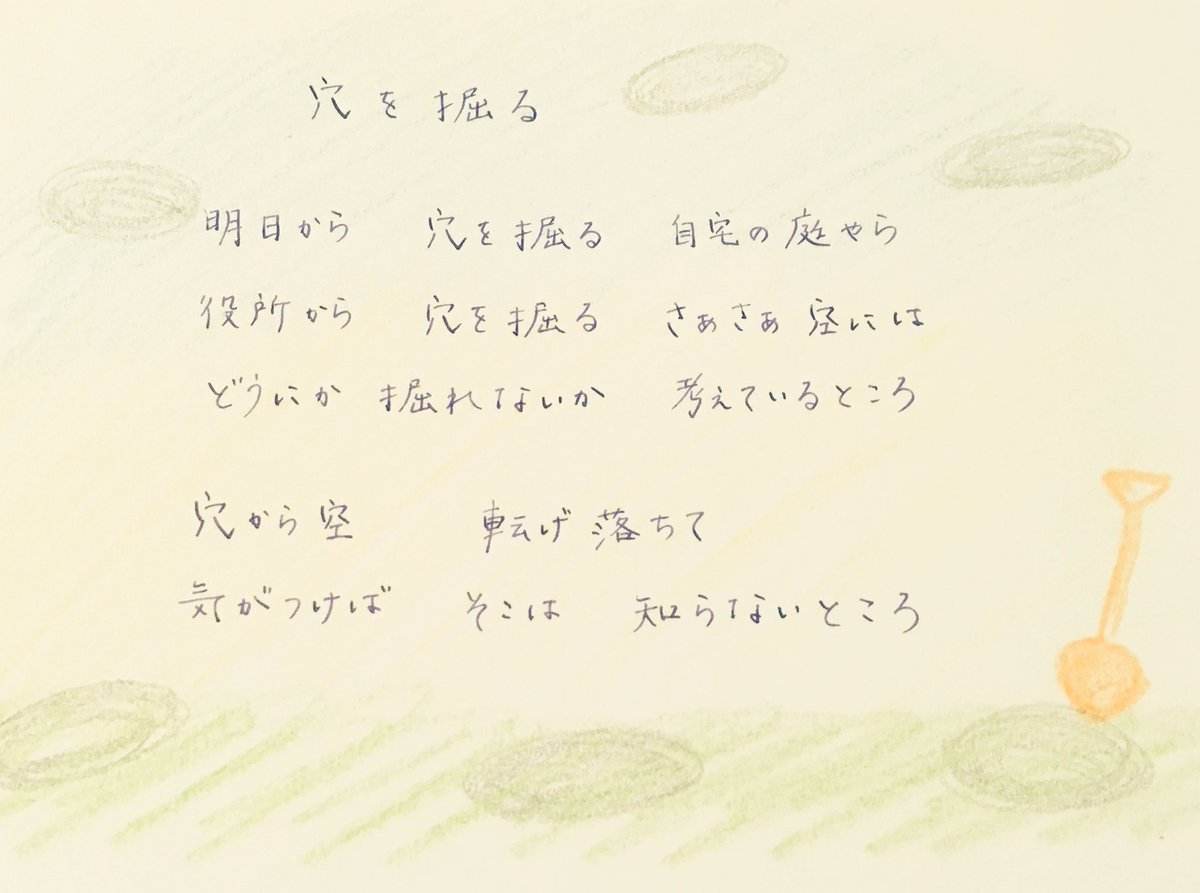 穴を掘る
明日から 穴を掘る 自宅の庭やら
役所から 穴を掘る さぁさぁ 空には
どうにか 掘れないか 考えているところ
穴から空 転げ落ちて
気がつけば そこは 知らないところ